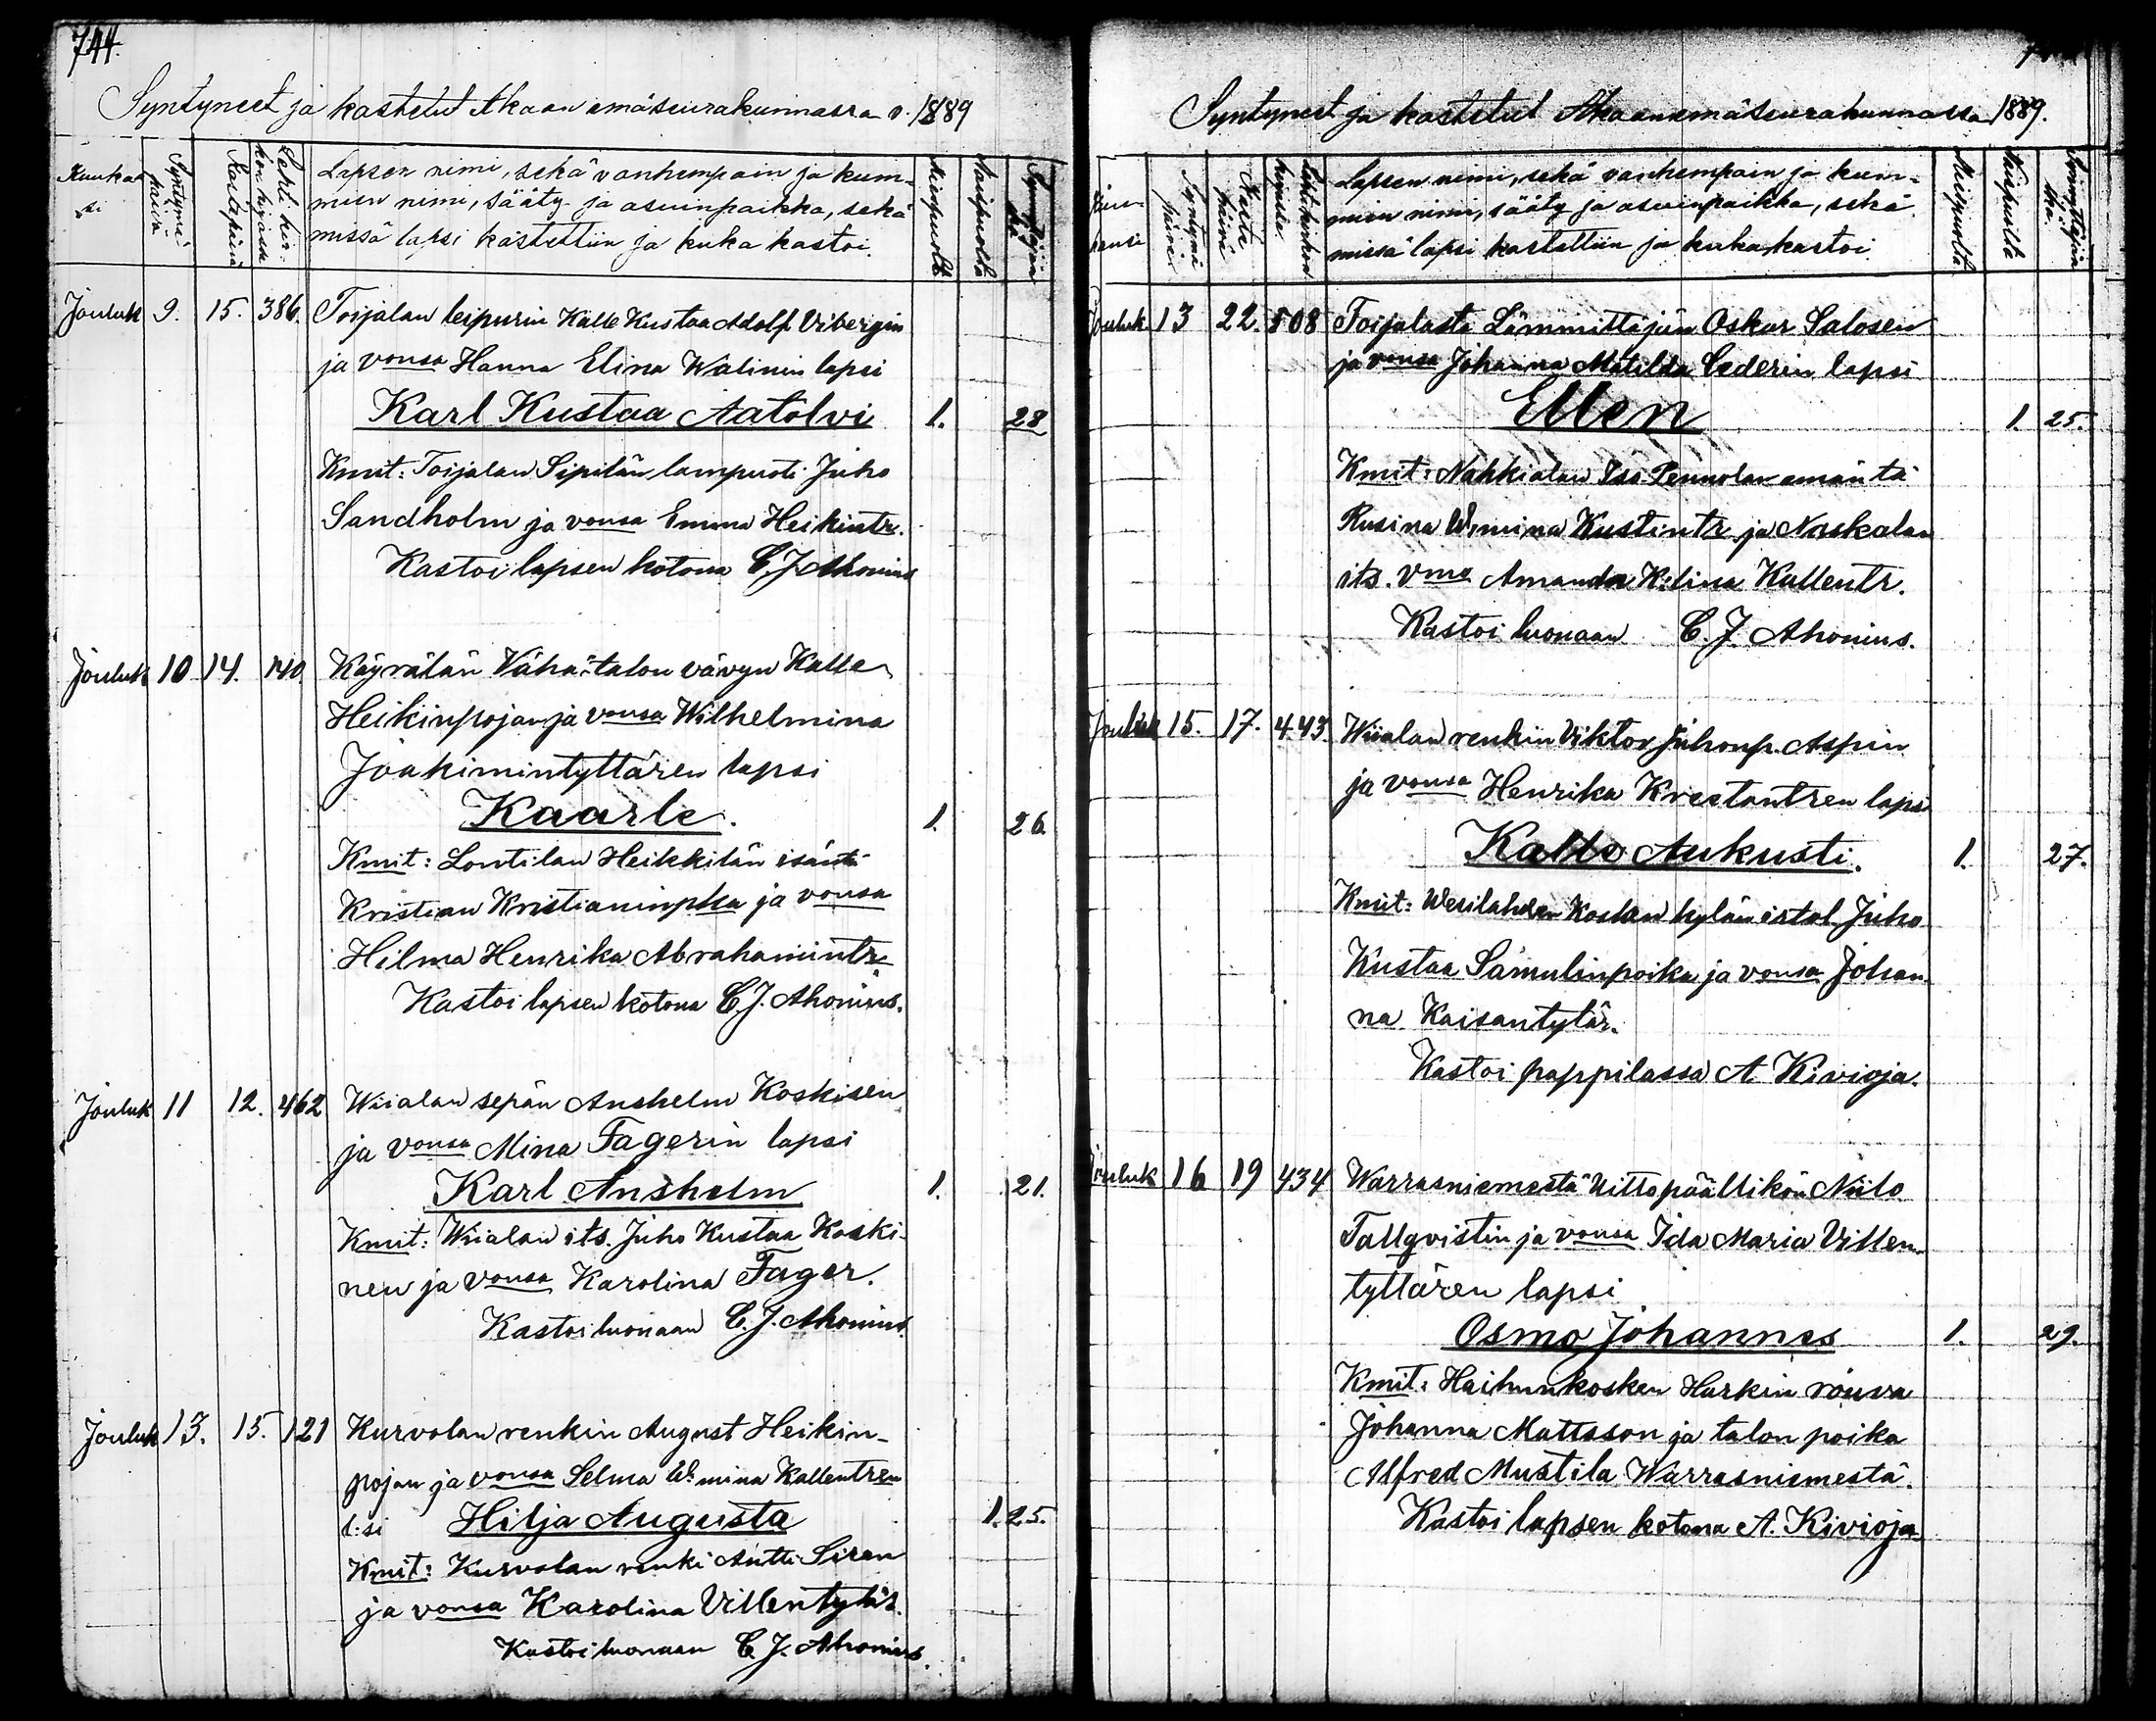 744.
Syntyneet ja kastetut Akaan emäseurakunnassa v. 1889
Kuukausi
Syntymäpäivä
Kastepäivä
Lehti kirkon kirjassa
Lapsen nimi, sekä vanhempain ja kum-
mien nimi, sääty- ja asuinpaikka, sekä
missä lapsi kastettiin ja kuka kastoi.
Miespuolta
Vaipuolta
Synnyttäjän ikä
Jouluk 9. 15. 386. Toijalan leipurin Kalle Kustaa Adolf Vibergin
ja vonsa Hanna Elina Walinin lapsi
Karl Kustaa Aatolvi 1. 28
Kmit: Toijalan Sipilän lampuoti Juho
Sandholm ja vonsa Emma Heikintr.
Kastoi lapsen kotona C. J. Ahonius
Jouluk 10 14. 140. Käyrälän Vähä-talon vävyn Kalle
Heikinpojan ja vonsa Wilhelmina
Joakimintyttären lapsi
Kaarle. 1. 26.
Kmit: Lontilan Heikkilän isäntä
Kristian Kristianinpka ja vonsa
Hilma Henrika Abrahamintr.
Kastoi lapsen kotona C. J. Ahonius.
Jouluk 11 12. 462 Wiialan sepän Anshelm Koskisen
ja vonsa Mina Fagerin lapsi
Karl Anshelm 1. 21.
Kmit: Wiialan its. Juho Kustaa Koski-
nen ja vonsa Karolina Fager.
Kastoi luonaan C. J. Ahonius.
Jouluk 13. 15. 121 Kurvolan renkin August Heikin-
pojan ja vonsa Selma W:mina Kallentren
l:si Hilja Augusta 1. 25.
Kmit: Kurvolan renki Antti Siren
ja vonsa Karolina Villentytär.
Kastoi luonaan C. J. Ahonius.
Syntyneet ja kastetut Akaan emäseurakunnassa 1889.
Syntymä päivä
Kaste päivä
Lapsen nimi, sekä vanhempain ja kum-
mien nimi, sääty ja asuinpaikka, sekä
missä lapsi kastettiin ja kuka kastoi
Miespuolta
Vaipuolta
Synnyttäjän ikä.
Jouluk 13 22. 508 Toijalasta Lämmittäjän Oskar Salosen
ja vonsa Johanna Matilda Cederin lapsi
Ellen 1. 25.
Kmit: Nahkialan Iso-Pennolan emäntä
Rusina W:mina Kustintr ja Naskalan
its. vmo Amanda H:lina Kallentr.
Kastoi luonaan C. J. Ahonius.
Jouluk 15. 17. 443. Wiialan renkin Viktor Juhonp. Aspin
ja vonsa Henrika Krestantren lapsi
Kalle Aukusti. 1. 27.
Kmit: Wesilahden Kosken kylän istol. Juho
Kustaa Samulinpoika ja vonsa Johan-
na Kaisantytär.
Kastoi pappilassa A. Kivioja.
Jouluk 16 19 434 Warrasniemestä Uittopäällikön Niilo
Tallqvistin ja vonsa Ida Maria Villen-
tyttären lapsi
Osmo Johannes 1. 29.
Kmit: Haihunkosken Harkin rouva
Johanna Mattsson ja talon poika
Alfred Mustila Warrasniemestä.
Kastoi lapsen kotona A. Kivioja.